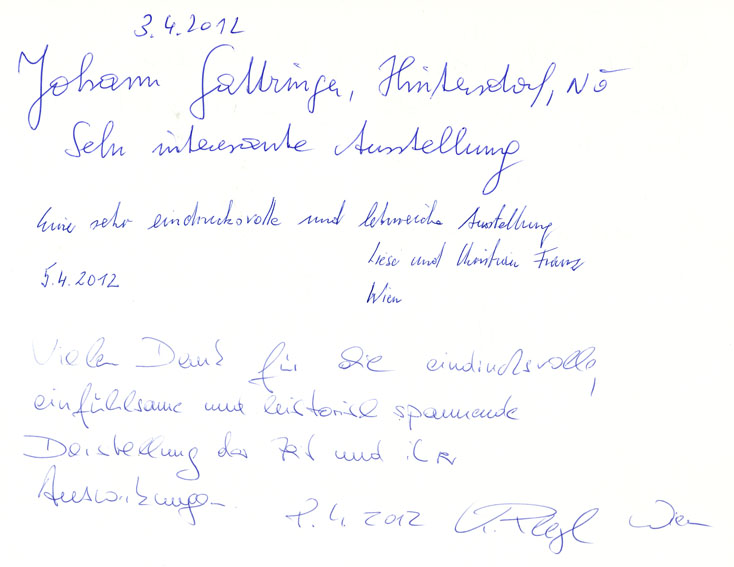 3.4.2012
Johann Gattringer, Hintersdorf, NÖ
Sehr interessante Ausstellung
Eine sehr eindrucksvolle und lehrreiche Ausstellung
Liese und Christian Franz
5.4.2012
Wien
Vielen Dank für die eindrucksvolle,
einfühlsame und historisch spannende
Darstellung der Zeit und ihrer
Auswirkungen.
8.4.2012 Wien